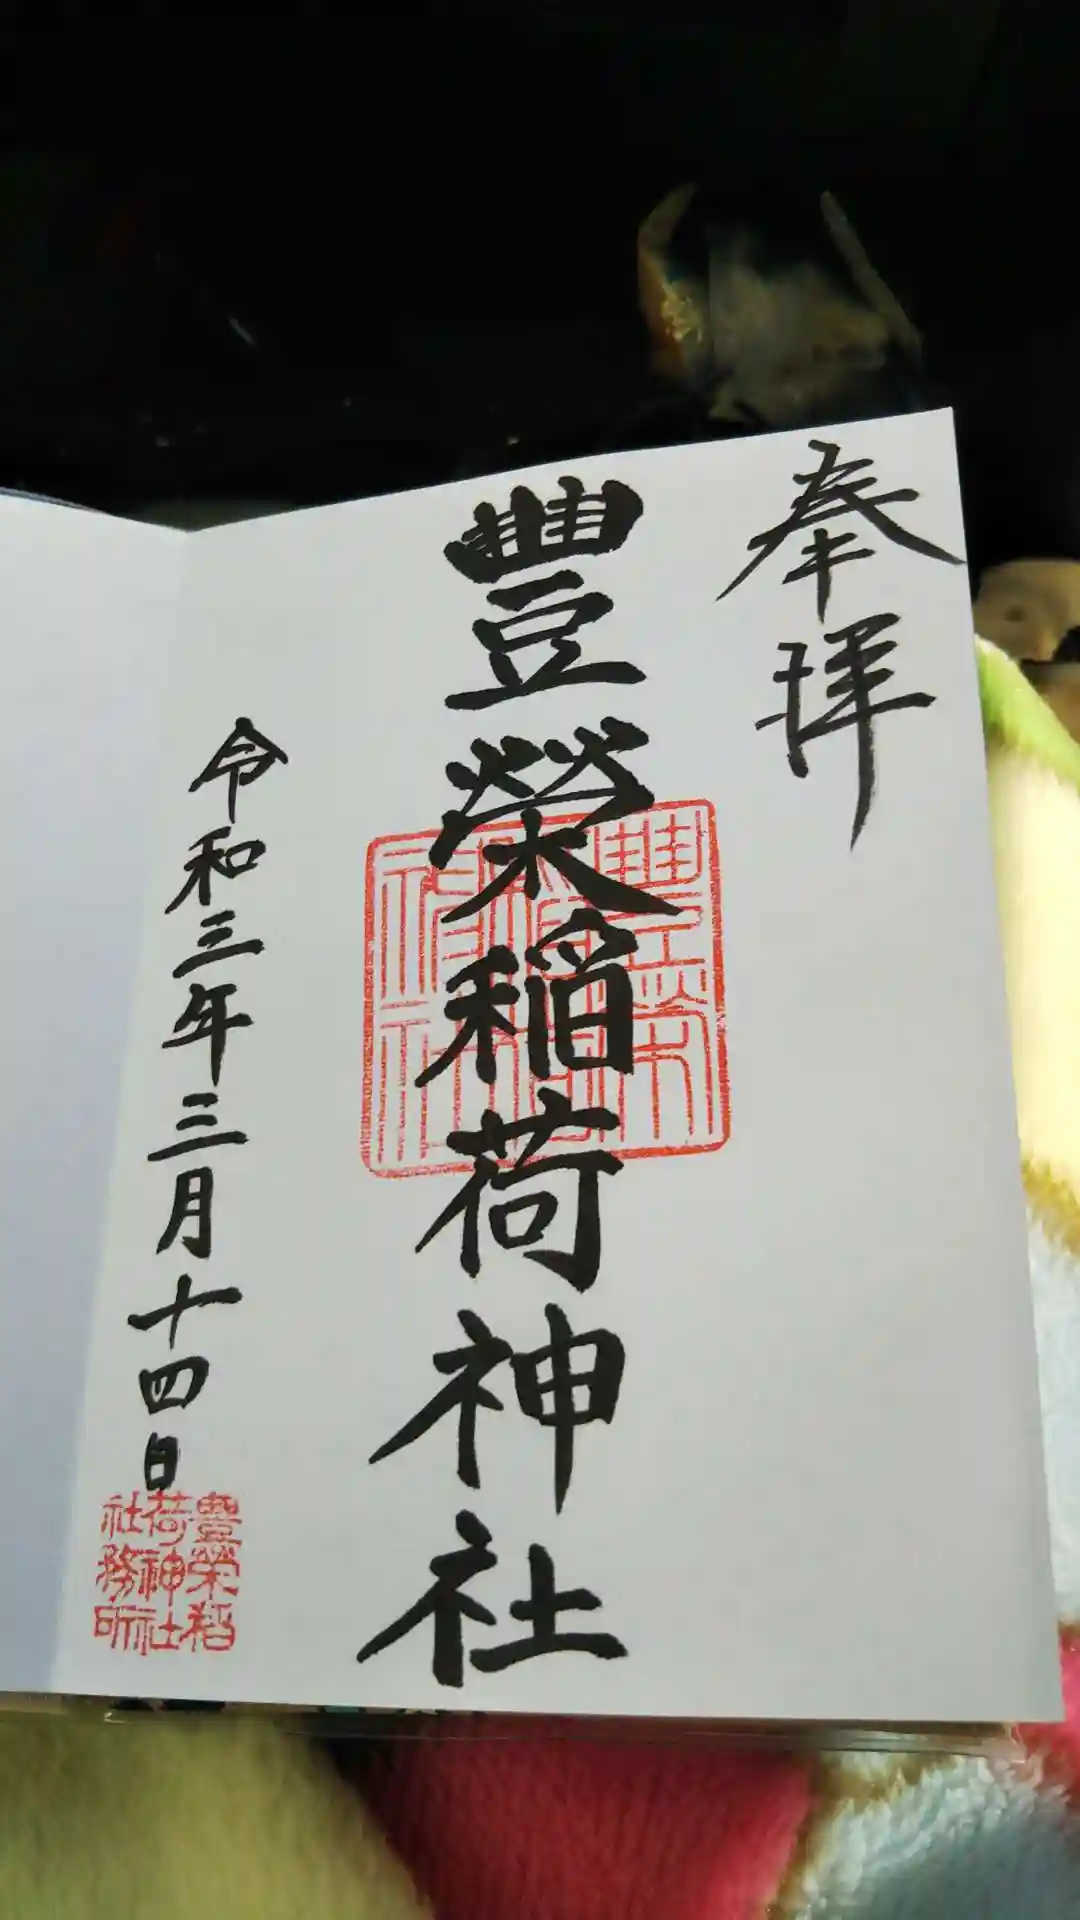 奉拝
豐榮稲荷神社
豊榮
神社
令和三年三月十四日
豊榮稲
荷神社
社務所